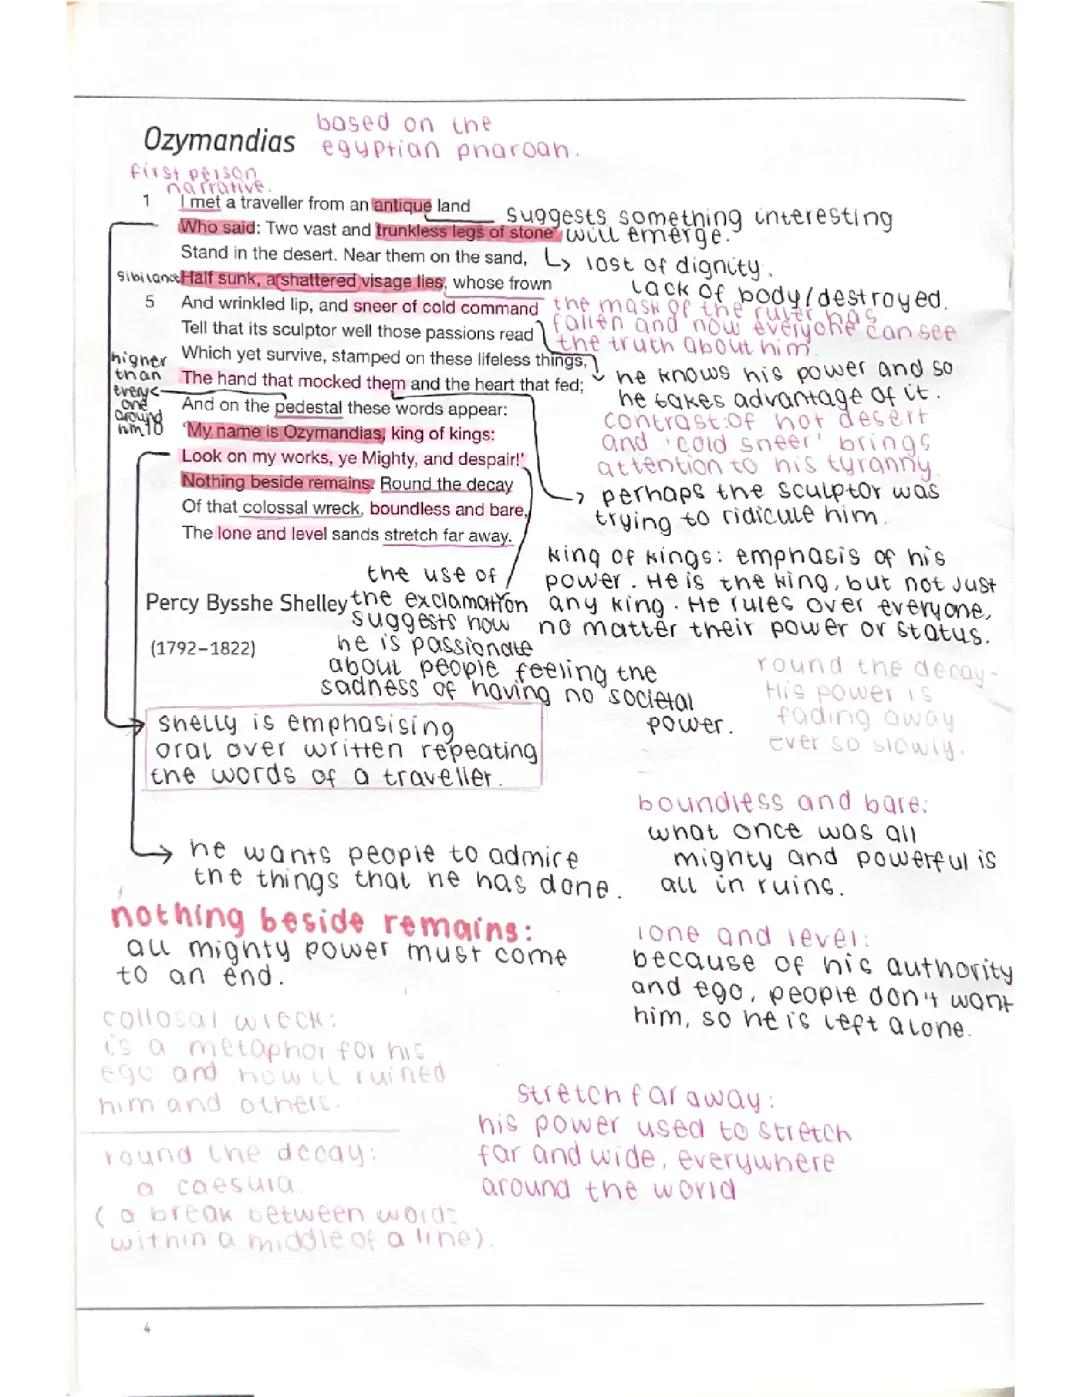 Ozymandias
based on the
egyptian pharoah.
first person
narrative.
1 I met a traveller from an antique land
suggests something interesting
will emerge.
Who said: Two vast and trunkless legs of stone
Stand in the desert. Near them on the sand,
lost of dignity.
lack of body/destroyed.
sibilance
Half sunk, a shattered visage lies, whose frown
5 And wrinkled lip, and sneer of cold command
the mask of the ruler has
fallen and now everyone can see
the truth about him.
Tell that its sculptor well those passions read
Which yet survive, stamped on these lifeless things,
he knows his power and so
he takes advantage of it.
The hand that mocked them and the heart that fed;
higher
than
every
one
around
him
And on the pedestal these words appear:
contrast of hot desert
and 'cold sneer' brings
attention to his tyranny
10 'My name is Ozymandias, king of kings:
Look on my works, ye Mighty, and despair!'
Nothing beside remains. Round the decay
perhaps the sculptor was
trying to ridicule him.
Of that colossal wreck, boundless and bare,
The lone and level sands stretch far away.
king of kings: emphasis of his
power. He is the king, but not just
any king. He rules over everyone,
no matter their power or status.
the use of
the exclamation
suggests how
he is passionate
about people feeling the
sadness of having no societal
power.
Percy Bysshe Shelley
(1792–1822)
round the decay-
His power is
fading away
ever so slowly.
Shelly is emphasising
oral over written repeating
the words of a traveller.
boundless and bare:
what once was all
mighty and powerful is
all in ruins.
he wants people to admire
the things that he has done.
nothing beside remains:
all mighty power must come
to an end.
lone and level:
because of his authority
and ego, people don't want
him, so he is left alone.
collosal wreck:
is a metaphor for his
ego and how it ruined
him and others.
stretch far away:
his power used to stretch
far and wide, everywhere
around the world
round the decay:
a caesura.
(a break between words
within a middle of a line).
4